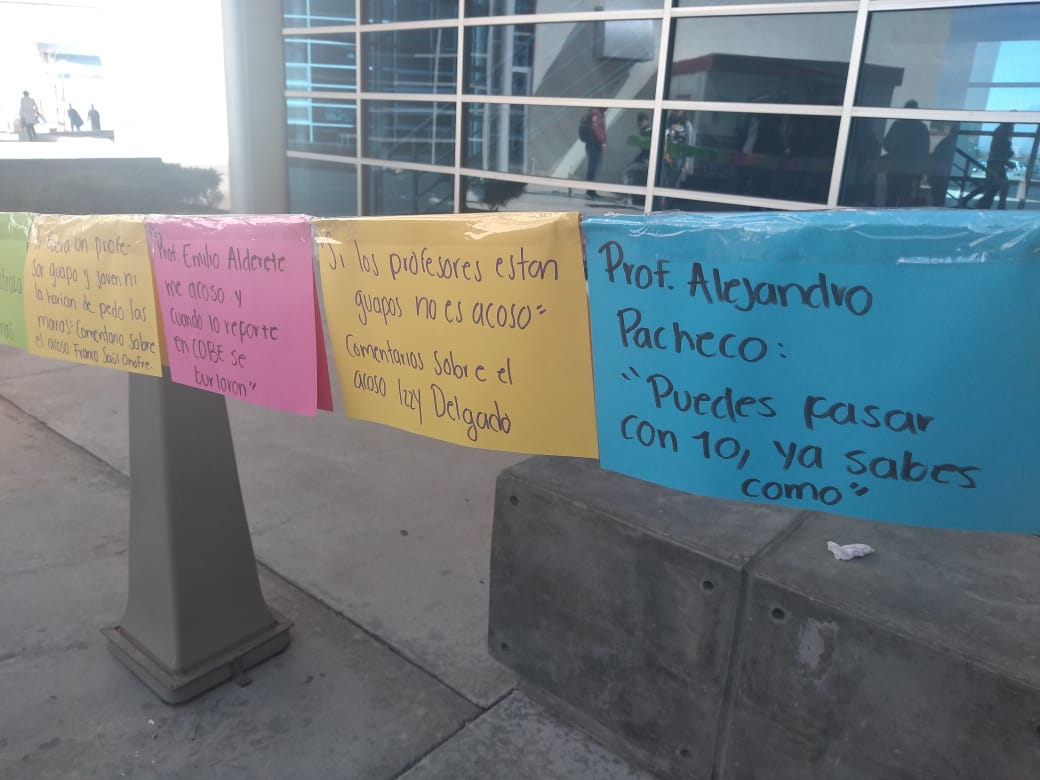 Si fuera un profe-
sor guapo y joven ni
la harian de pedo las
morras" Comentario sobre
el acoso Franco Saúl Onofre.
"Prof. Emilio Alderete
me acoso y
cuando lo reporte
en COBE se
burlaron"
"Si los profesores estan
guapos no es acoso"
Comentarios sobre el
acoso Izzy Delgado
Prof. Alejandro
Pacheco:
"Puedes pasar
con 10, ya sabes
como"